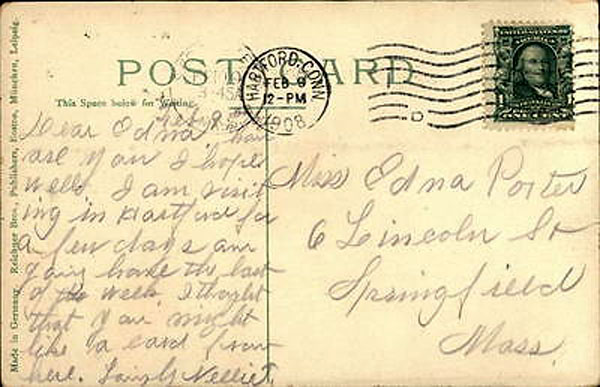 POST CARD
This Space below for Writing.
HARTFORD, CONN.
FEB 9
12-PM
1908
UNITED STATES OF AMERICA
Made in Germany. Reichner Bros., Publishers, Boston, München, Leipzig.
Feb 9
Dear Edna, how
are you I hope
well. I am visit
ing in Hartford for
a few days am
going home the last
of the week. I thought
that you might
like a card from
here. Nellie T.
Miss Edna Porter
6 Lincoln St
Springfield
Mass.